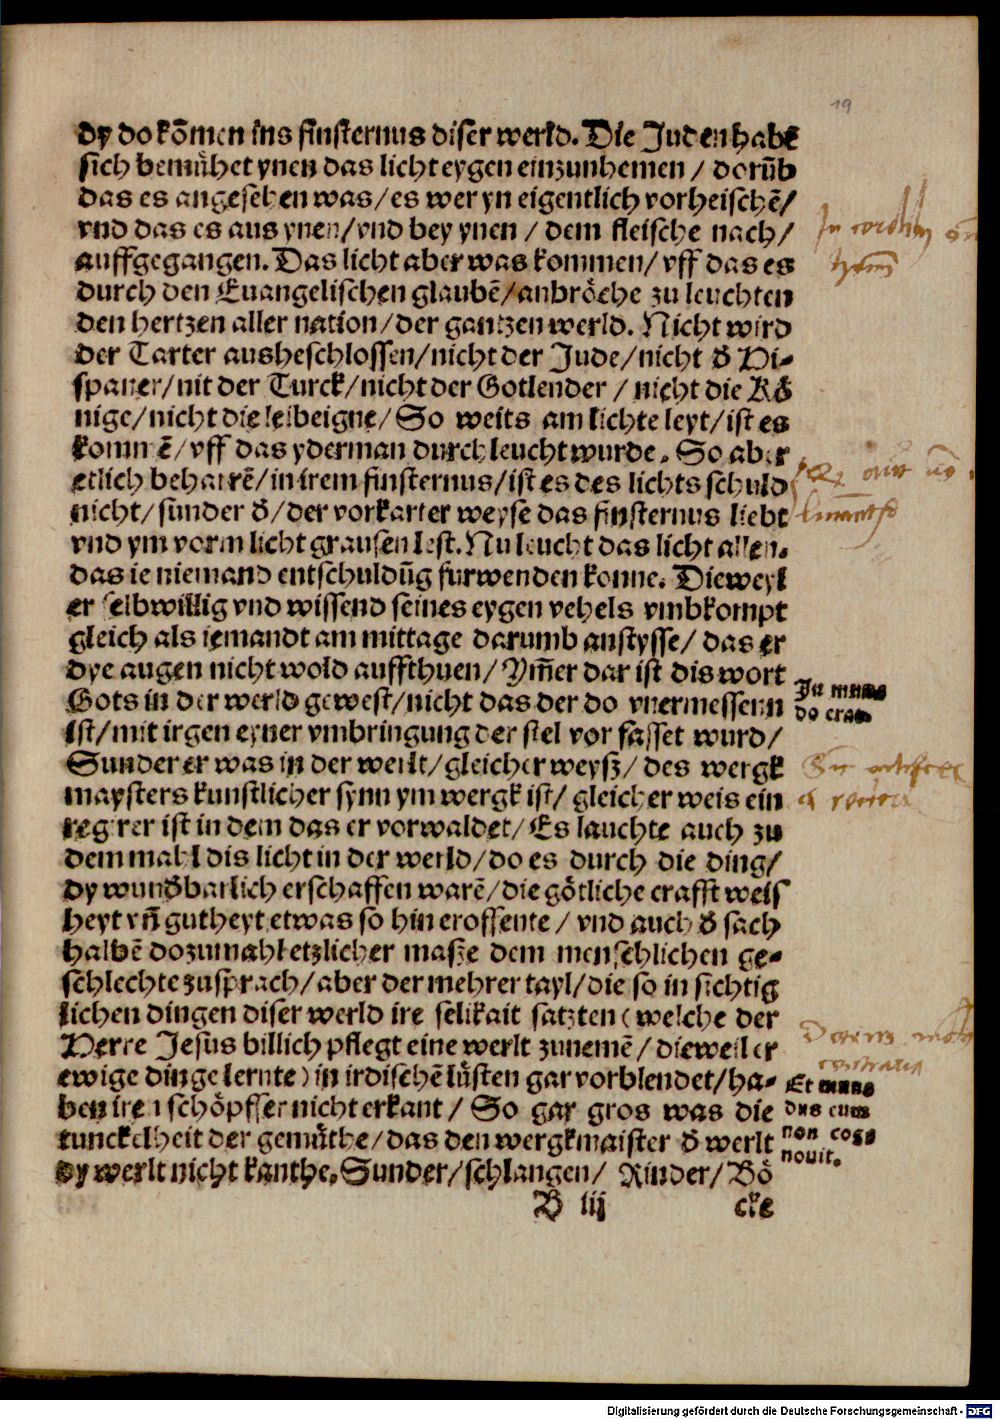 19
dy do kõmen ins finsternus diser werld. Die Juden habẽ
sich bemůhet ynen das licht eygen einzunhemen / dorũb
das es angesehen was / es wer yn eigentlich vorheischẽ /
vnd das es aus ynen / vnd bey ynen / dem fleische nach /
auffgegangen. Das licht aber was kommen / vff das es
durch den Euangelischen glaubẽ / anbröche zu leuchten
den hertzen aller nation / der gantzen werld. Nicht wird
der Tarter ausheschlossen / nicht der Jude / nicht d̄ Hi-
spaner / nit der Turck / nicht der Gotlender / nicht die Kö
nige / nicht die leibeigne / So weits am lichte leyt / ist es
kommẽ / vff das yderman durchleucht wurde. So aber
etlich beharrẽ / in irem finsternus / ist es des lichts schuld
nicht / sunder d̄ / der vorkarter weyse das finsternus liebt
vnd ym vorm licht grausen lest. Nu leucht das licht allen.
das ie niemand entschuldũg furwenden konne. Dieweyl
er selbwillig vnd wissend seines eygen vehels vmbkompt
gleich als iemandt am mittage darumb anstysse / das er
dye augen nicht wold auffthuen / Ym̃er dar ist dis wort
Gots in der werld gewest / nicht das der do vnermessenn
ist / mit irgen eyner vmbringung der stel vor fasset wurd /
Sunder er was in der werlt / gleicher weysz / des wergk
maysters kunstlicher synn ym wergk ist / gleicher weis ein
regirer ist in dem das er vorwaldet / Es lauchte auch zu
dem mahl dis licht in der werld / do es durch die ding /
dy wund̄barlich erschaffen warẽ / die götliche crafft weis
heyt vñ gutheyt etwas so hin eroffente / vnd auch d̄ sach
halbẽ dozumahl etzlicher masze dem menschlichen ge-
schlechte zusprach / aber der mehrer tayl / die so in sichtig
lichen dingen diser werld ire selikait satzten (welche der
Herre Jesus billich pflegt eine werlt zunemẽ / dieweil er
ewige dinge lernte) in irdischẽ lüsten gar vorblendet / ha-
ben iren schöpffer nicht erkant / So gar gros was die
tunckelheit der gemüthe / das den wergkmaister d̄ werlt
dy werlt nicht kanthe. Sunder / schlangen / Rinder / Bö
B iij cke
In mun
do erat
Et mun
dus eum
non cog
nouit.
Digitalisierung gefördert durch die Deutsche Forschungsgemeinschaft - DFG